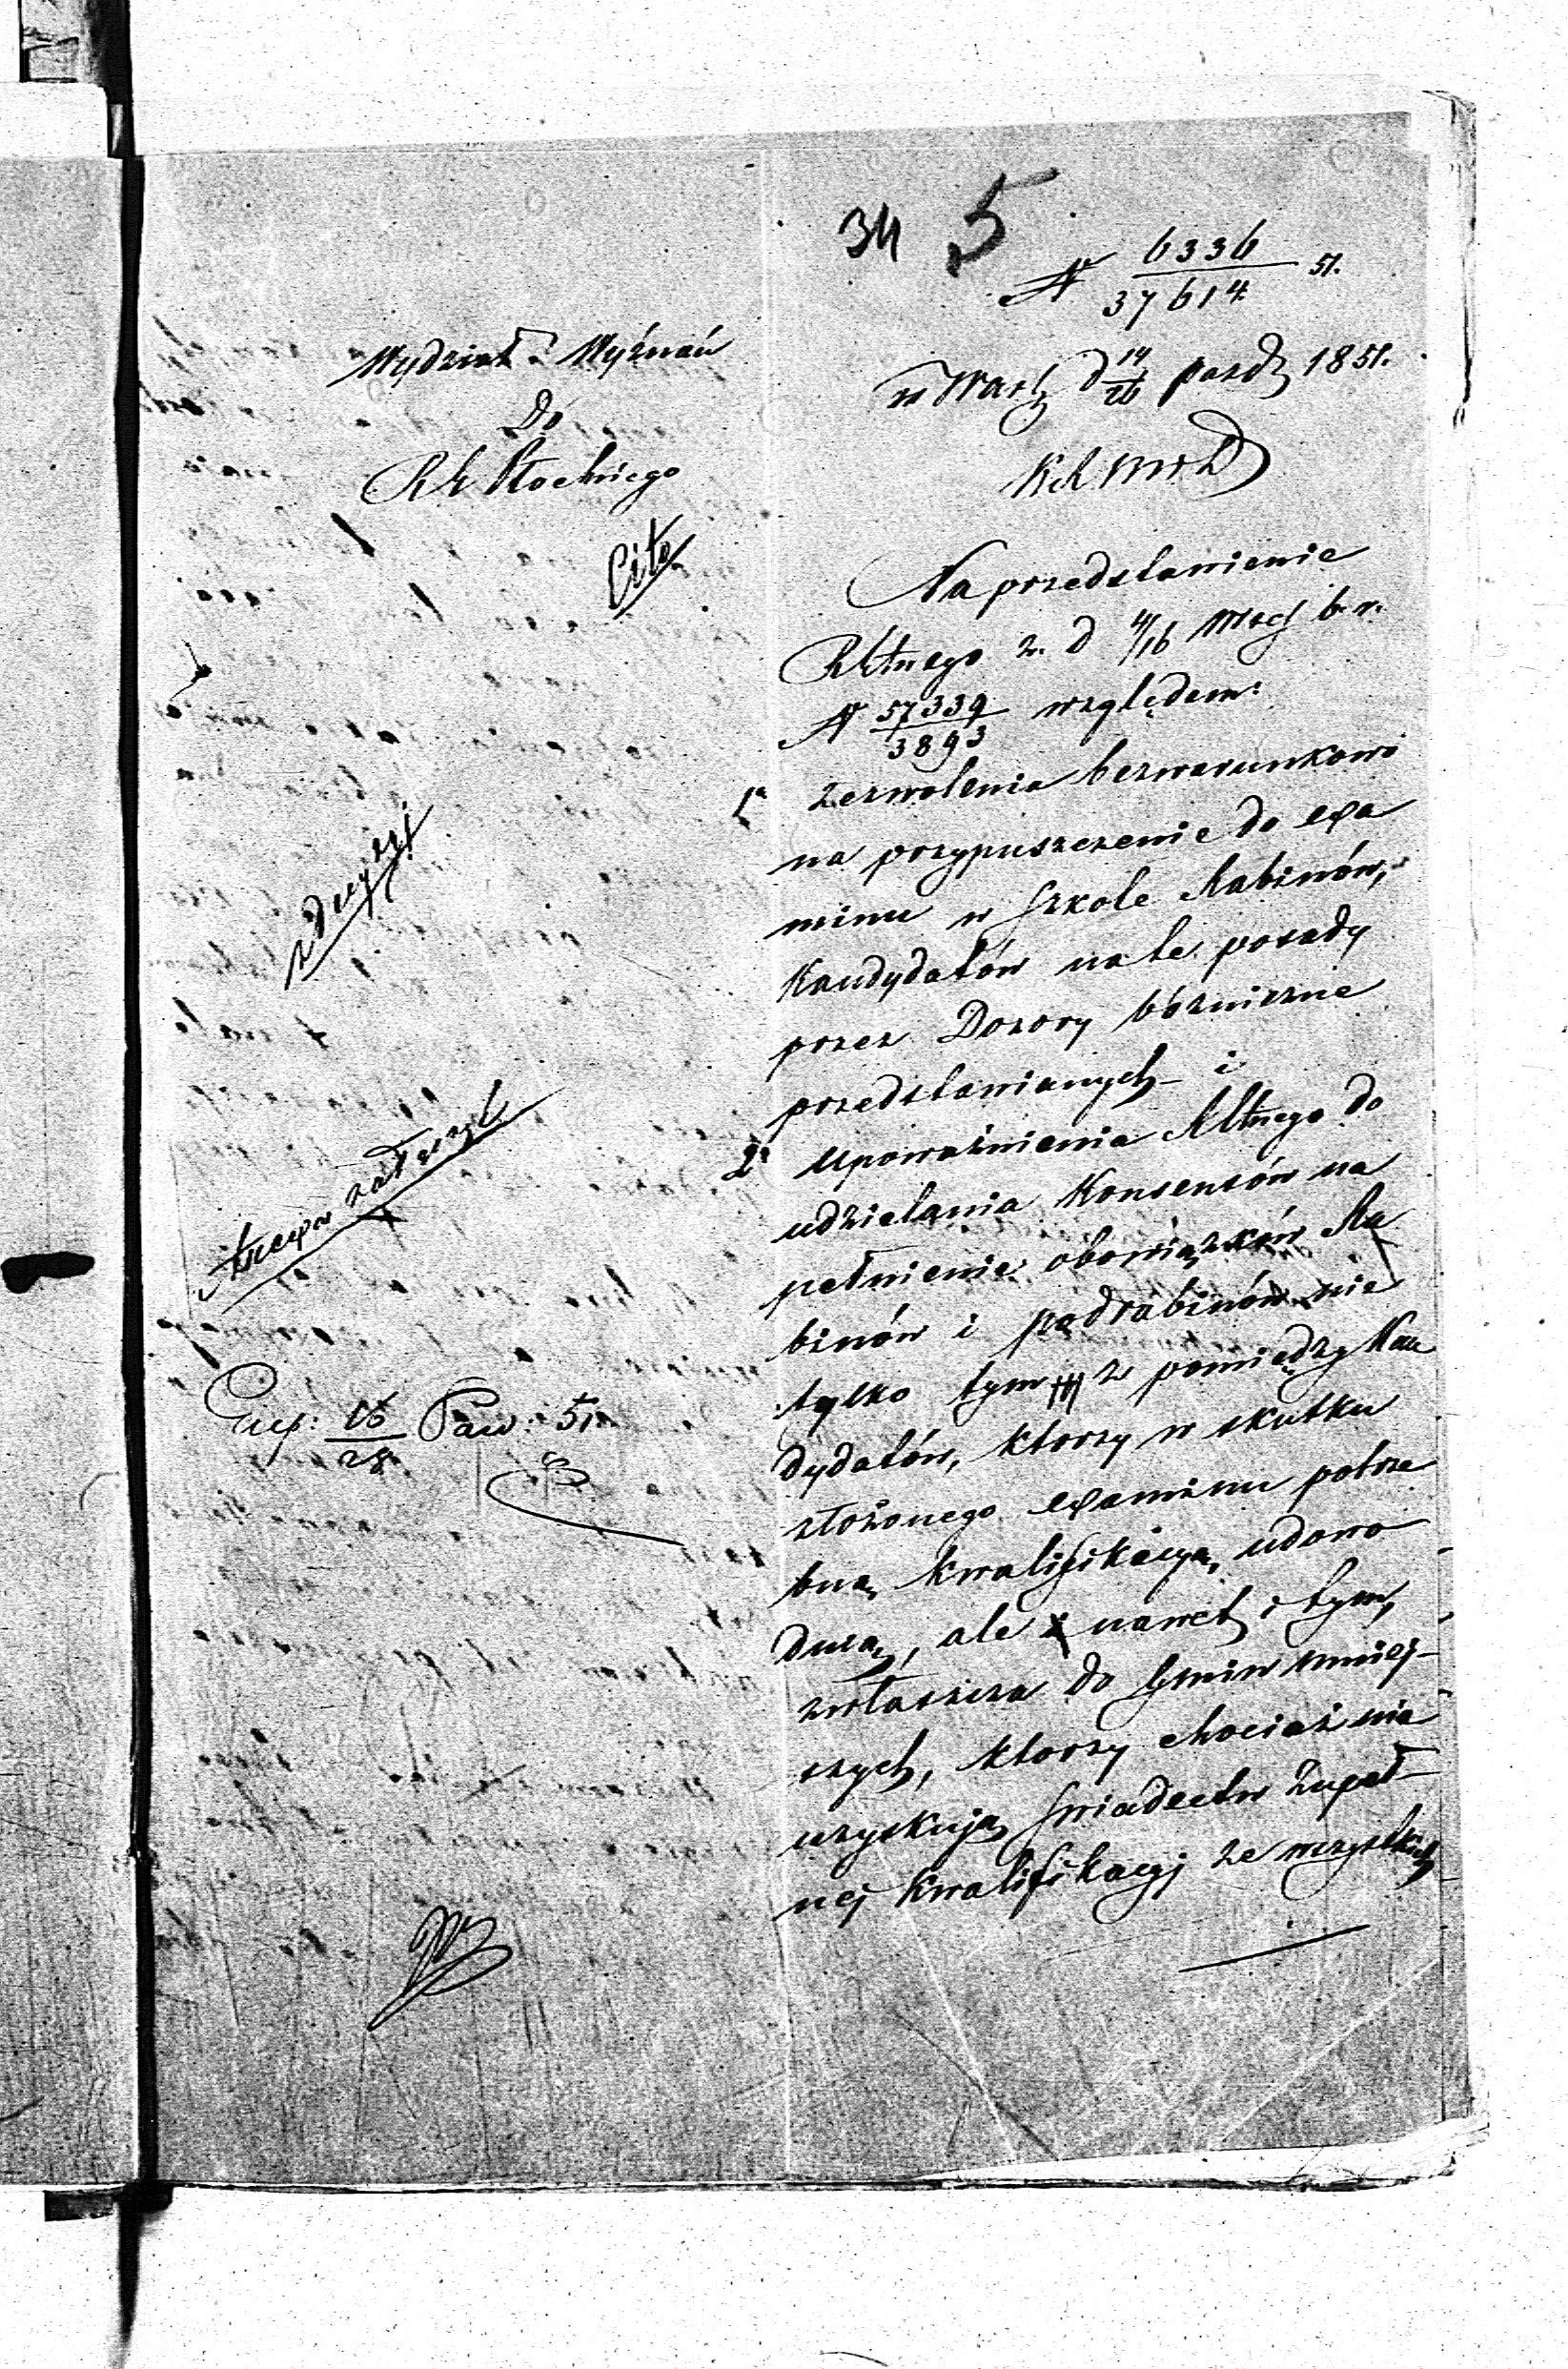 34 5
N 6336/37614 51.
Wydział Wyznań
w Warsz d 14/26 pazdz 1851.
Do
Rh Płockiego
Cito
Na przedstawienie
z. d 4/16 b. r.
N 57339/3893 względem:
1° zezwolenia bezwarunkowo
na przypuszczenie do exa
minu w Szkole Rabinów,
Kandydatów na te posady
przez Dozory bóżnicze
przedstawianych i
2° upoważnienia do
udzielania Konsensów na
pełnienie obowiązków Ra
binów i podrabinów nie
tylko tym z pomiędzy Kan
dydatów, ktorzy w skutku
złożonego examinu potrze
bną kwalifikacyą udowo
dnią, ale nawet i tym,
zwłaszcza do Gmin mniej
szych, ktorzy chociaż nie
uzyskują świadectw zupeł
nej kwalifikacyj ze wszystkich
załącz
Exp: 16/28 Paz: 51